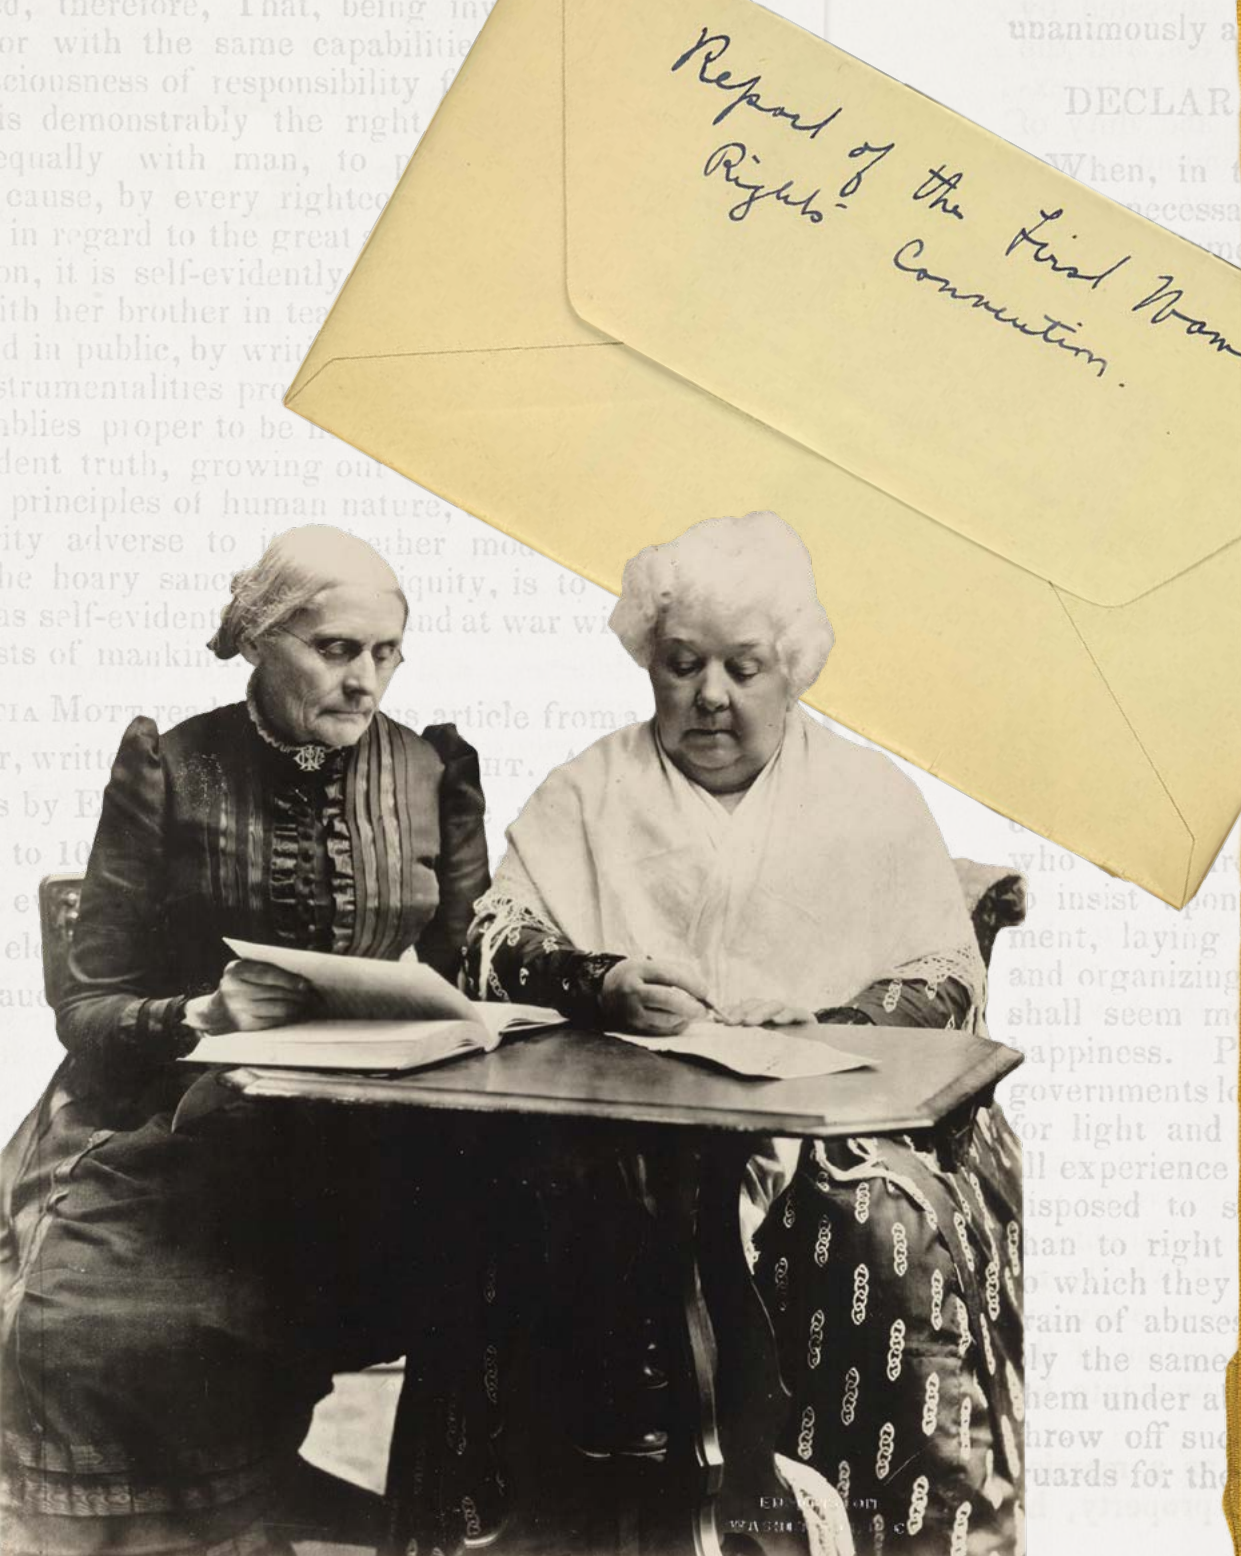 Report of the First Wom
Rights Convention.
d, therefore, That, being inv
or with the same capabilitie
sciousness of responsibility f
is demonstrably the right
equally with man, to p
cause, by every righteo
in regard to the great
on, it is self-evidently
ith her brother in tea
d in public, by writ
strumentalities pro
blies proper to be
dent truth, growing out
principles of human nature,
ity adverse to it ether mod
he hoary sanc iquity, is to
as self-evident and at war wi
sts of mankind.
CIA MOTT read us article from a
r, writte HT.
s by E
to 10
ev
ele
auc
unanimously a
DECLAR
When, in t
necessa
who
insist upon
ment, laying
and organizing
shall seem mo
happiness. P
governments lo
for light and
ll experience
isposed to s
han to right
o which they
rain of abuses
ly the same
hem under a
hrow off suc
guards for the
WASHI C